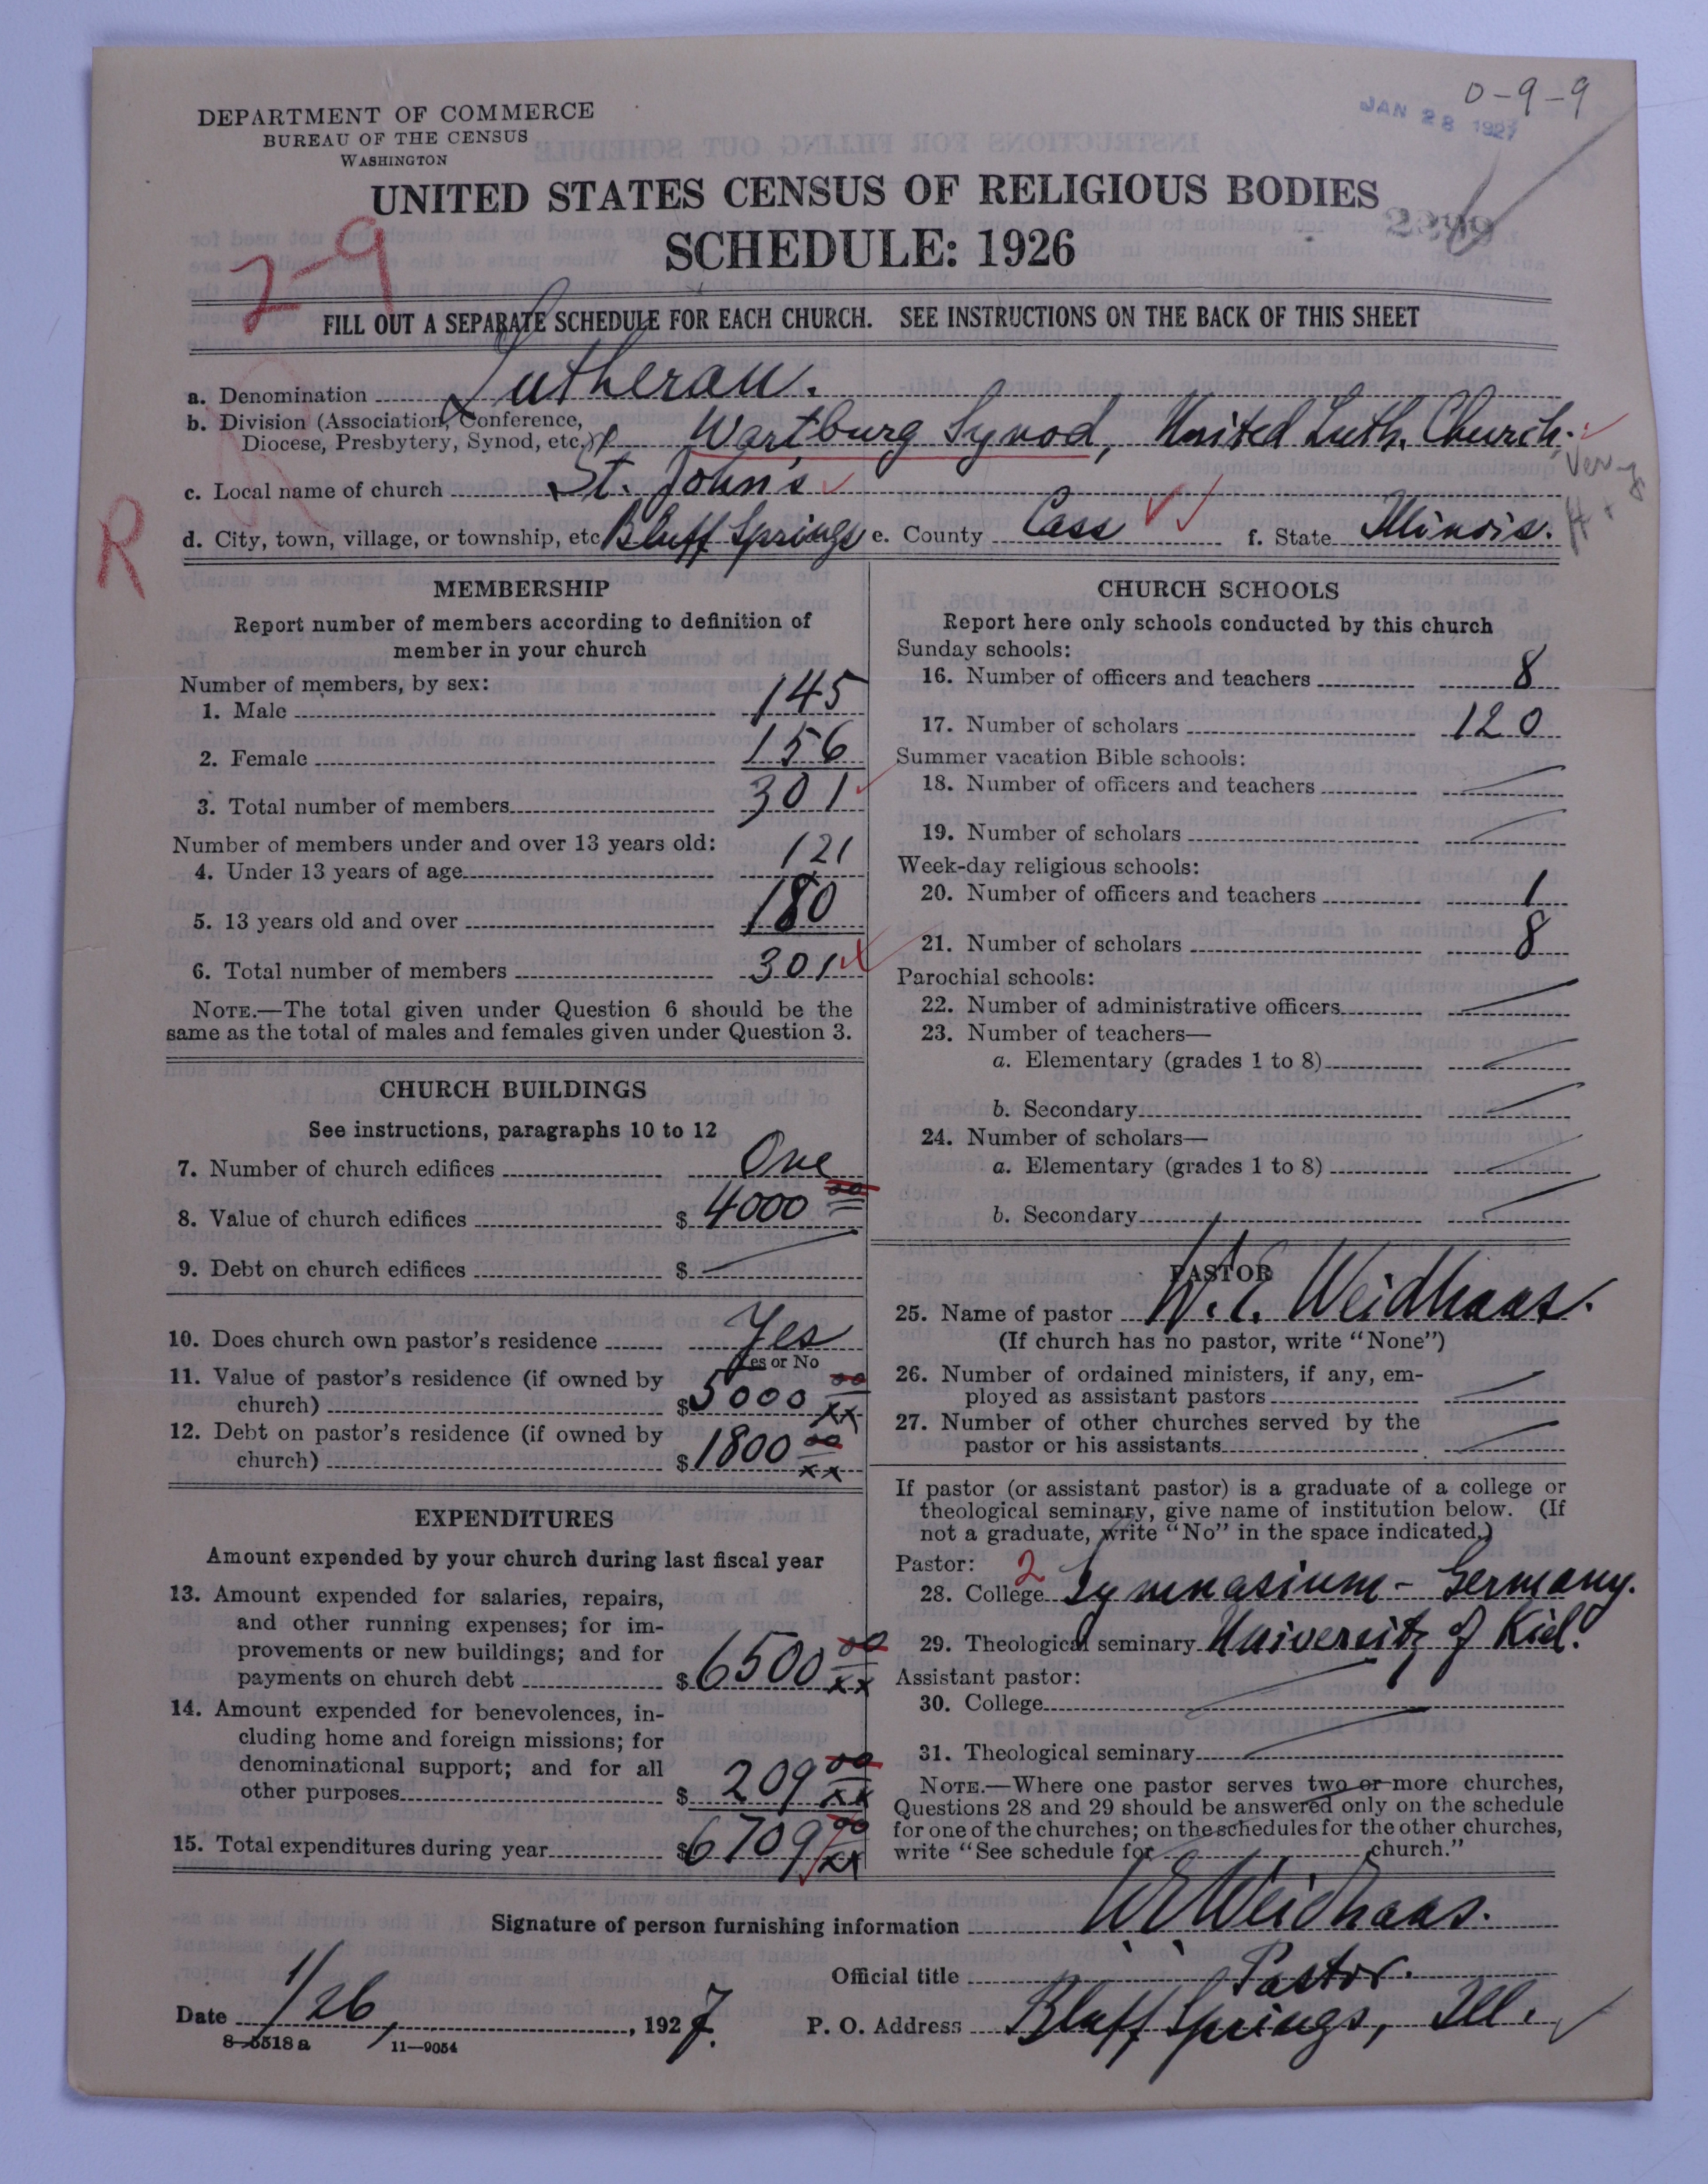 0-9-9
JAN 28 1927
DEPARTMENT OF COMMERCE
BUREAU OF THE CENSUS
WASHINGTON
UNITED STATES CENSUS OF RELIGIOUS BODIES
SCHEDULE: 1926
2-9
FILL OUT A SEPARATE SCHEDULE FOR EACH CHURCH. SEE INSTRUCTIONS ON THE BACK OF THIS SHEET
a. Denomination Lutheran.
b. Division (Association, Conference,
Diocese, Presbytery, Synod, etc.) Wartburg Synod, United Luth. Church.
c. Local name of church St. John's
R
d. City, town, village, or township, etc. Bluff Springs e. County Cass f. State Illinois.
MEMBERSHIP
Report number of members according to definition of
member in your church
Number of members, by sex:
1. Male 145
2. Female 156
3. Total number of members 301
Number of members under and over 13 years old:
4. Under 13 years of age 121
5. 13 years old and over 180
6. Total number of members 301
NOTE.—The total given under Question 6 should be the
same as the total of males and females given under Question 3.
CHURCH BUILDINGS
See instructions, paragraphs 10 to 12
7. Number of church edifices One
8. Value of church edifices $ 4000 00
9. Debt on church edifices $
10. Does church own pastor's residence Yes
Yes or No
11. Value of pastor's residence (if owned by
church) $ 5000 00 xx
12. Debt on pastor's residence (if owned by
church) $ 1800 00 xx
EXPENDITURES
Amount expended by your church during last fiscal year
13. Amount expended for salaries, repairs,
and other running expenses; for im-
provements or new buildings; and for
payments on church debt $ 6500 00 xx
14. Amount expended for benevolences, in-
cluding home and foreign missions; for
denominational support; and for all
other purposes $ 209 00 xx
15. Total expenditures during year $ 6709 00 xx
CHURCH SCHOOLS
Report here only schools conducted by this church
Sunday schools:
16. Number of officers and teachers 8
17. Number of scholars 120
Summer vacation Bible schools:
18. Number of officers and teachers
19. Number of scholars
Week-day religious schools:
20. Number of officers and teachers 1
21. Number of scholars 8
Parochial schools:
22. Number of administrative officers
23. Number of teachers—
a. Elementary (grades 1 to 8)
b. Secondary
24. Number of scholars—
a. Elementary (grades 1 to 8)
b. Secondary
PASTOR
25. Name of pastor W. E. Weidhaas.
(If church has no pastor, write "None")
26. Number of ordained ministers, if any, em-
ployed as assistant pastors
27. Number of other churches served by the
pastor or his assistants
If pastor (or assistant pastor) is a graduate of a college or
theological seminary, give name of institution below. (If
not a graduate, write "No" in the space indicated.)
Pastor: 2
28. College Gymnasium - Germany.
29. Theological seminary University of Kiel.
Assistant pastor:
30. College
31. Theological seminary
NOTE.—Where one pastor serves two or more churches,
Questions 28 and 29 should be answered only on the schedule
for one of the churches; on the schedules for the other churches,
write "See schedule for church."
Signature of person furnishing information W E Weidhaas.
Official title Pastor.
Date 1/26, 1927. P. O. Address Bluff Springs, Ill.
8-5518 a 11-9054